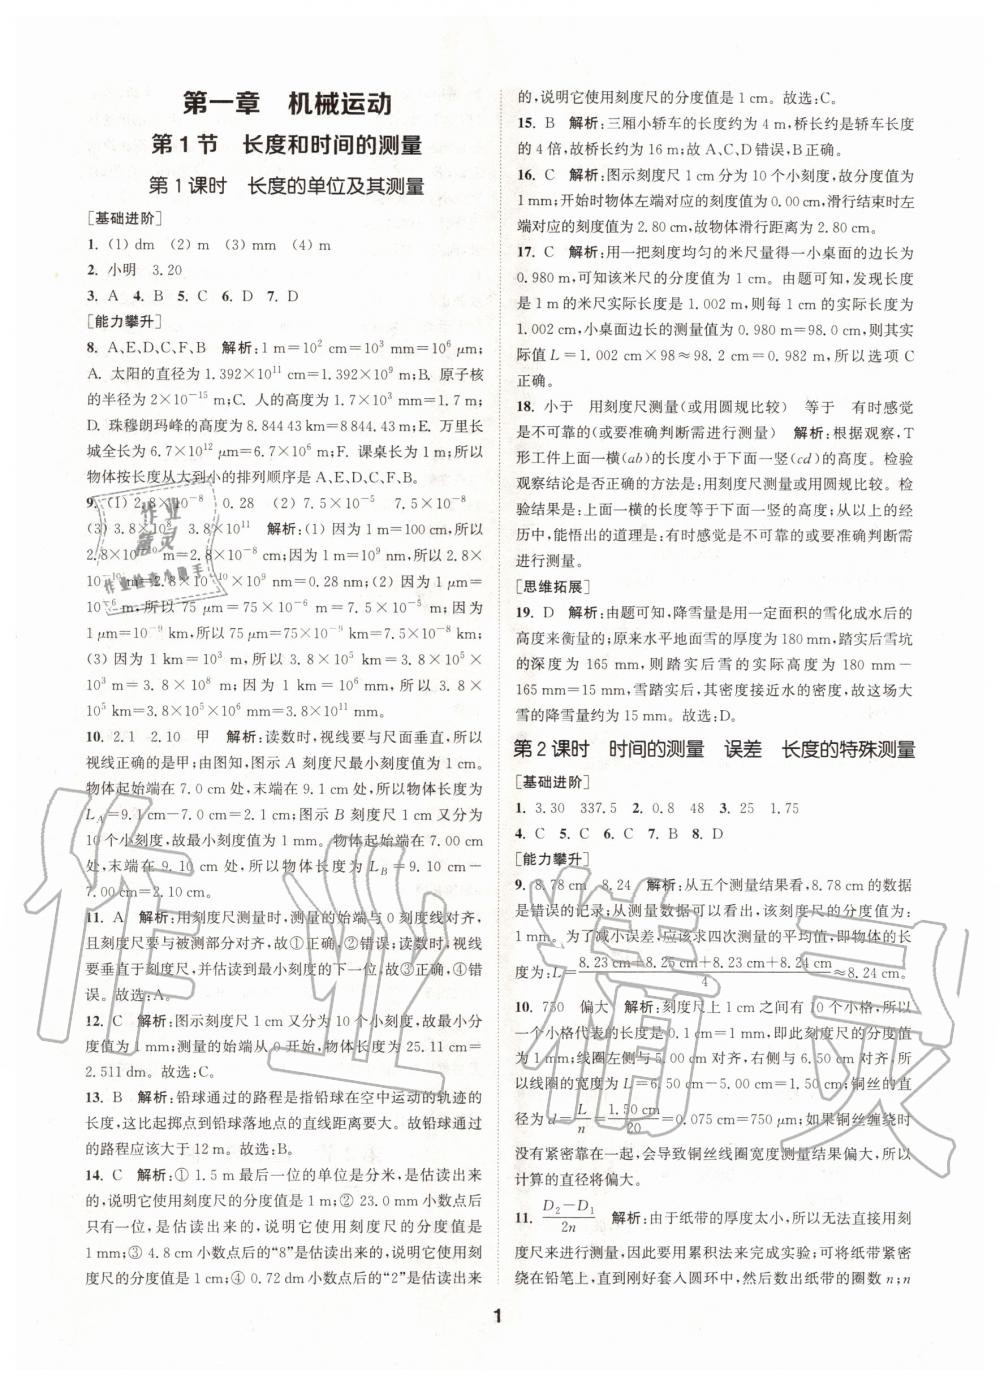 第一章 机械运动
第1节 长度和时间的测量
第1课时 长度的单位及其测量
[基础进阶]
1. (1) dm (2) m (3) mm (4) m
2. 小明 3.20
3. A 4. B 5. C 6. D 7. D
[能力攀升]
8. A、E、D、C、F、B 解析:1 m=10² cm=10³ mm=10⁶ μm;
A. 太阳的直径为 1.392×10¹¹ cm=1.392×10⁹ m;B. 原子核
的半径为 2×10⁻¹⁵ m;C. 人的高度为 1.7×10³ mm=1.7 m;
D. 珠穆朗玛峰的高度为 8.844 43 km=8 844.43 m;E. 万里长
城全长为 6.7×10¹² μm=6.7×10⁶ m;F. 课桌长为 1.1 m;所以
物体按长度从大到小的排列顺序是 A、E、D、C、F、B。
9. (1) 2.8×10⁻⁸ 0.28 (2) 7.5×10⁻⁵ 7.5×10⁻⁸
(3) 3.8×10⁸ 3.8×10¹¹ 解析:(1) 因为 1 m=100 cm,所以
2.8×10⁻¹⁰ m=2.8×10⁻⁸ cm;因为 1 nm=10⁻⁹ m,所以 2.8×
10⁻¹⁰ m=2.8×10⁻¹⁰×10⁹ nm=0.28 nm;(2) 因为 1 μm=
10⁻⁶ m,所以 75 μm=75×10⁻⁶ m=7.5×10⁻⁵ m;因为
1 μm=10⁻⁹ km,所以 75 μm=75×10⁻⁹ km=7.5×10⁻⁸ km;
(3) 因为 1 km=10³ m,所以 3.8×10⁵ km=3.8×10⁵×
10³ m=3.8×10⁸ m;因为 1 km=10⁶ mm,所以 3.8×
10⁵ km=3.8×10⁵×10⁶ mm=3.8×10¹¹ mm。
10. 2.1 2.10 甲 解析:读数时,视线要与尺面垂直,所以
视线正确的是甲;由图知,图示 A 刻度尺最小刻度值为 1 cm,
物体起始端在 7.0 cm 处,末端在 9.1 cm 处,所以物体长度为
L_A=9.1 cm-7.0 cm=2.1 cm;图示 B 刻度尺 1 cm 又分为
10 个小刻度,故最小刻度值为 1 mm。物体起始端在 7.00 cm
处,末端在 9.10 cm 处,所以物体长度为 L_B=9.10 cm-
7.00 cm=2.10 cm。
11. A 解析:用刻度尺测量时,测量的始端与 0 刻度线对齐,
且刻度尺要与被测部分对齐,故①正确,②错误;读数时,视线
要垂直于刻度尺,并估读到最小刻度值,故③正确,④错
误。故选:A。
12. C 解析:图示刻度尺 1 cm 又分为 10 个小刻度,故最小刻
度值为 1 mm;测量的始端从 0 开始,物体长度为 25.11 cm=
2.511 dm。故选:C。
13. B 解析:铅球通过的路程是指铅球在空中运动的轨迹的
长度,这比起掷点到铅球落地点的直线距离要大。故铅球通过
的路程应该大于 12 m。故选:B。
14. C 解析:① 1.5 m 最后一位的单位是分米,是估读出来
的,说明它使用刻度尺的分度值是 1 m;② 23.0 mm 小数点后
只有一位,是估读出来的,说明它使用刻度尺的分度值是
1 mm;③ 4.8 cm 小数点后的“8”是估读出来的,说明它使用刻
度尺的分度值是 1 cm;④ 0.72 dm 小数点后的“2”是估读出来
的,说明它使用刻度尺的分度值是 1 cm。故选:C。
15. B 解析:三厢小轿车的长度约为 4 m,桥长约是轿车长度
的 4 倍,故桥长约为 16 m;故 A、C、D 错误,B 正确。
16. C 解析:图示刻度尺 1 cm 分为 10 个小刻度,故分度值为
1 mm;开始时物体左端对应的刻度值为 0.00 cm,滑行结束时左
端对应的刻度值为 2.80 cm,故物体滑行距离为 2.80 cm。
17. C 解析:用一把刻度均匀的米尺量得一小桌面的边长为
0.980 m,可知该米尺的分度值为 1 cm。由题可知,发现长度
是 1 m 的米尺实际长度是 1.002 m,则每 1 cm 的实际长度为
1.002 cm,小桌面边长的测量值为 0.980 m=98.0 cm,则其实
际值 L=1.002 cm×98≈98.2 cm=0.982 m,所以选项 C
正确。
18. 小于 用刻度尺测量(或用圆规比较) 等于 有时感觉
是不可靠的(或要准确判断需进行测量) 解析:根据观察,T
形工件上面一横(ab)的长度小于下面一竖(cd)的高度。检验
观察结论是否正确的方法是:用刻度尺测量或用圆规比较。检
验结果是:上面一横的长度等于下面一竖的高度;从以上的经
历中,能悟出的道理是:有时感觉是不可靠的或要准确判断需
进行测量。
[思维拓展]
19. D 解析:由题可知,降雪量是用一定面积的雪化成水后的
高度来衡量的;原来水平地面雪的厚度为 180 mm,踏实后雪坑
的深度为 165 mm,则踏实后雪的实际高度为 180 mm-
165 mm=15 mm,雪踏实后,其密度接近水的密度,故这场大
雪的降雪量约为 15 mm。故选:D。
第2课时 时间的测量 误差 长度的特殊测量
[基础进阶]
1. 3.30 337.5 2. 0.8 48 3. 25 1.75
4. C 5. C 6. C 7. B 8. D
[能力攀升]
9. 8.78 cm 8.24 解析:从五个测量结果看,8.78 cm 的数据
是错误的记录;从测量数据可以看出,该刻度尺的分度值为:
1 mm。为了减小误差,应该求四次测量的平均值,即物体的长
度为:L=(8.23 cm+8.25 cm+8.23 cm+8.24 cm)/4≈8.24 cm。
10. 750 偏大 解析:刻度尺上 1 cm 之间有 10 个小格,所以
一个小格代表的长度是 0.1 cm=1 mm,即此刻度尺的分度值
为 1 mm;线圈左侧与 5.00 cm 对齐,右侧与 6.50 cm 对齐,所
以线圈的宽度为 L=6.50 cm-5.00 cm=1.50 cm;铜丝的直
径为 d=L/n=1.50 cm/20=0.075 cm=750 μm;如果铜丝缠绕时
没有紧密靠在一起,会导致铜丝线圈宽度测量结果偏大,所以
计算的直径将偏大。
11. (D₂-D₁)/2n 解析:由于纸带的厚度太小,所以无法直接用刻
度尺来进行测量,因此要用累积法来完成实验;可将纸带紧密
绕在铅笔上,直到刚好套入圆环中,然后数出纸带的圈数 n;n
1
作业精灵
作业检查小助手
作业精灵